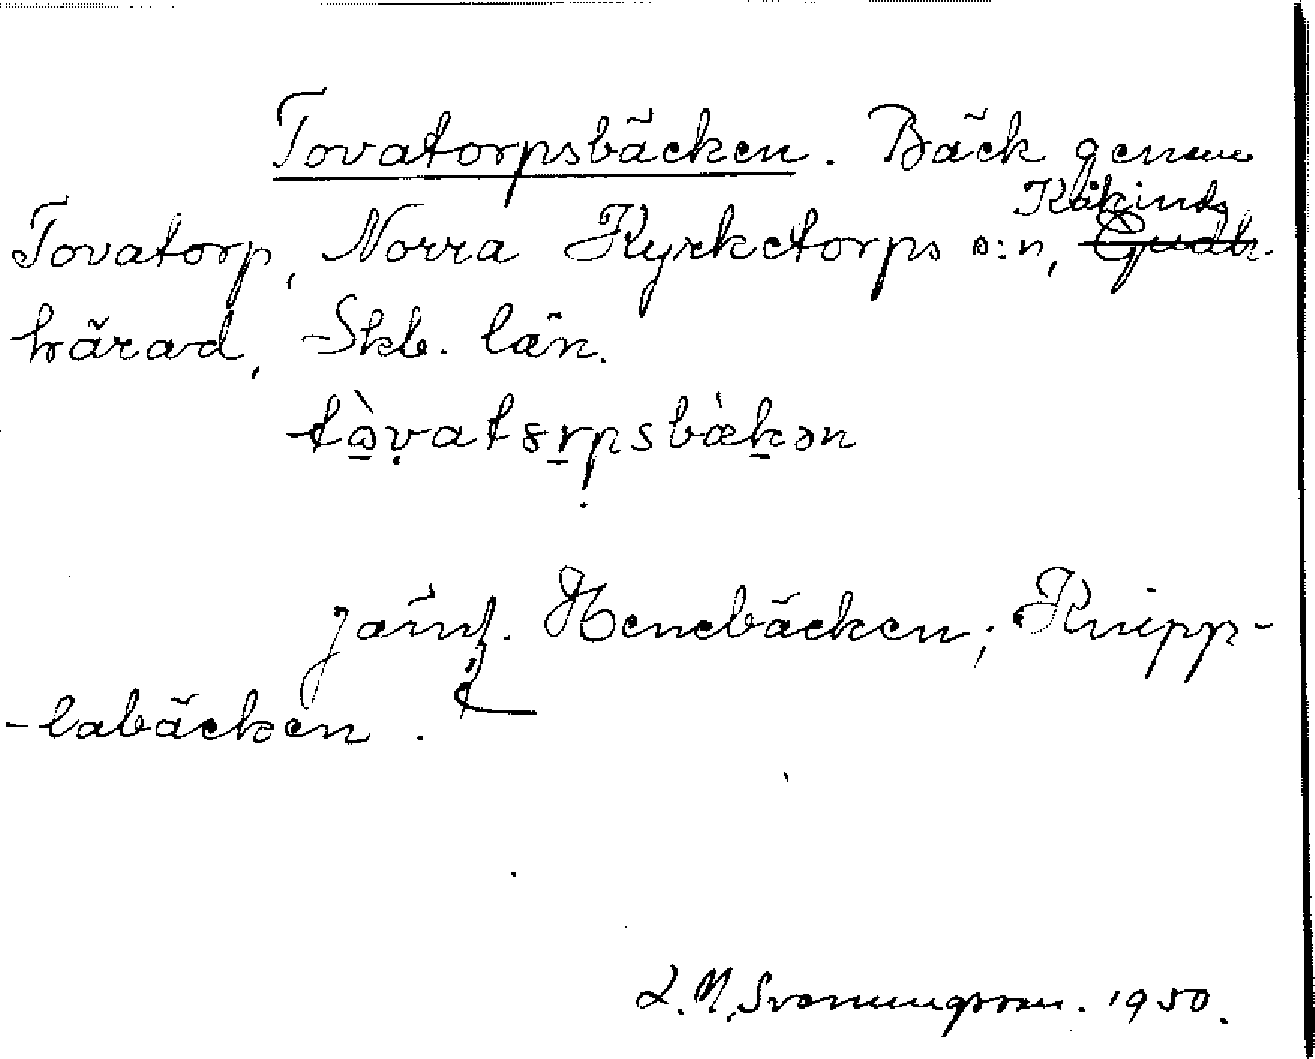 Tovatorpsbäcken. Bäck genom
Kåkinds
Tovatorp, Norra Kyrketorps s:n, Gudh.
härad, Skb. län.
tòvatorpsbàkən
jämf. Henebäcken; Knipp-
-labäcken.
L. N. Svenungsson. 1950.